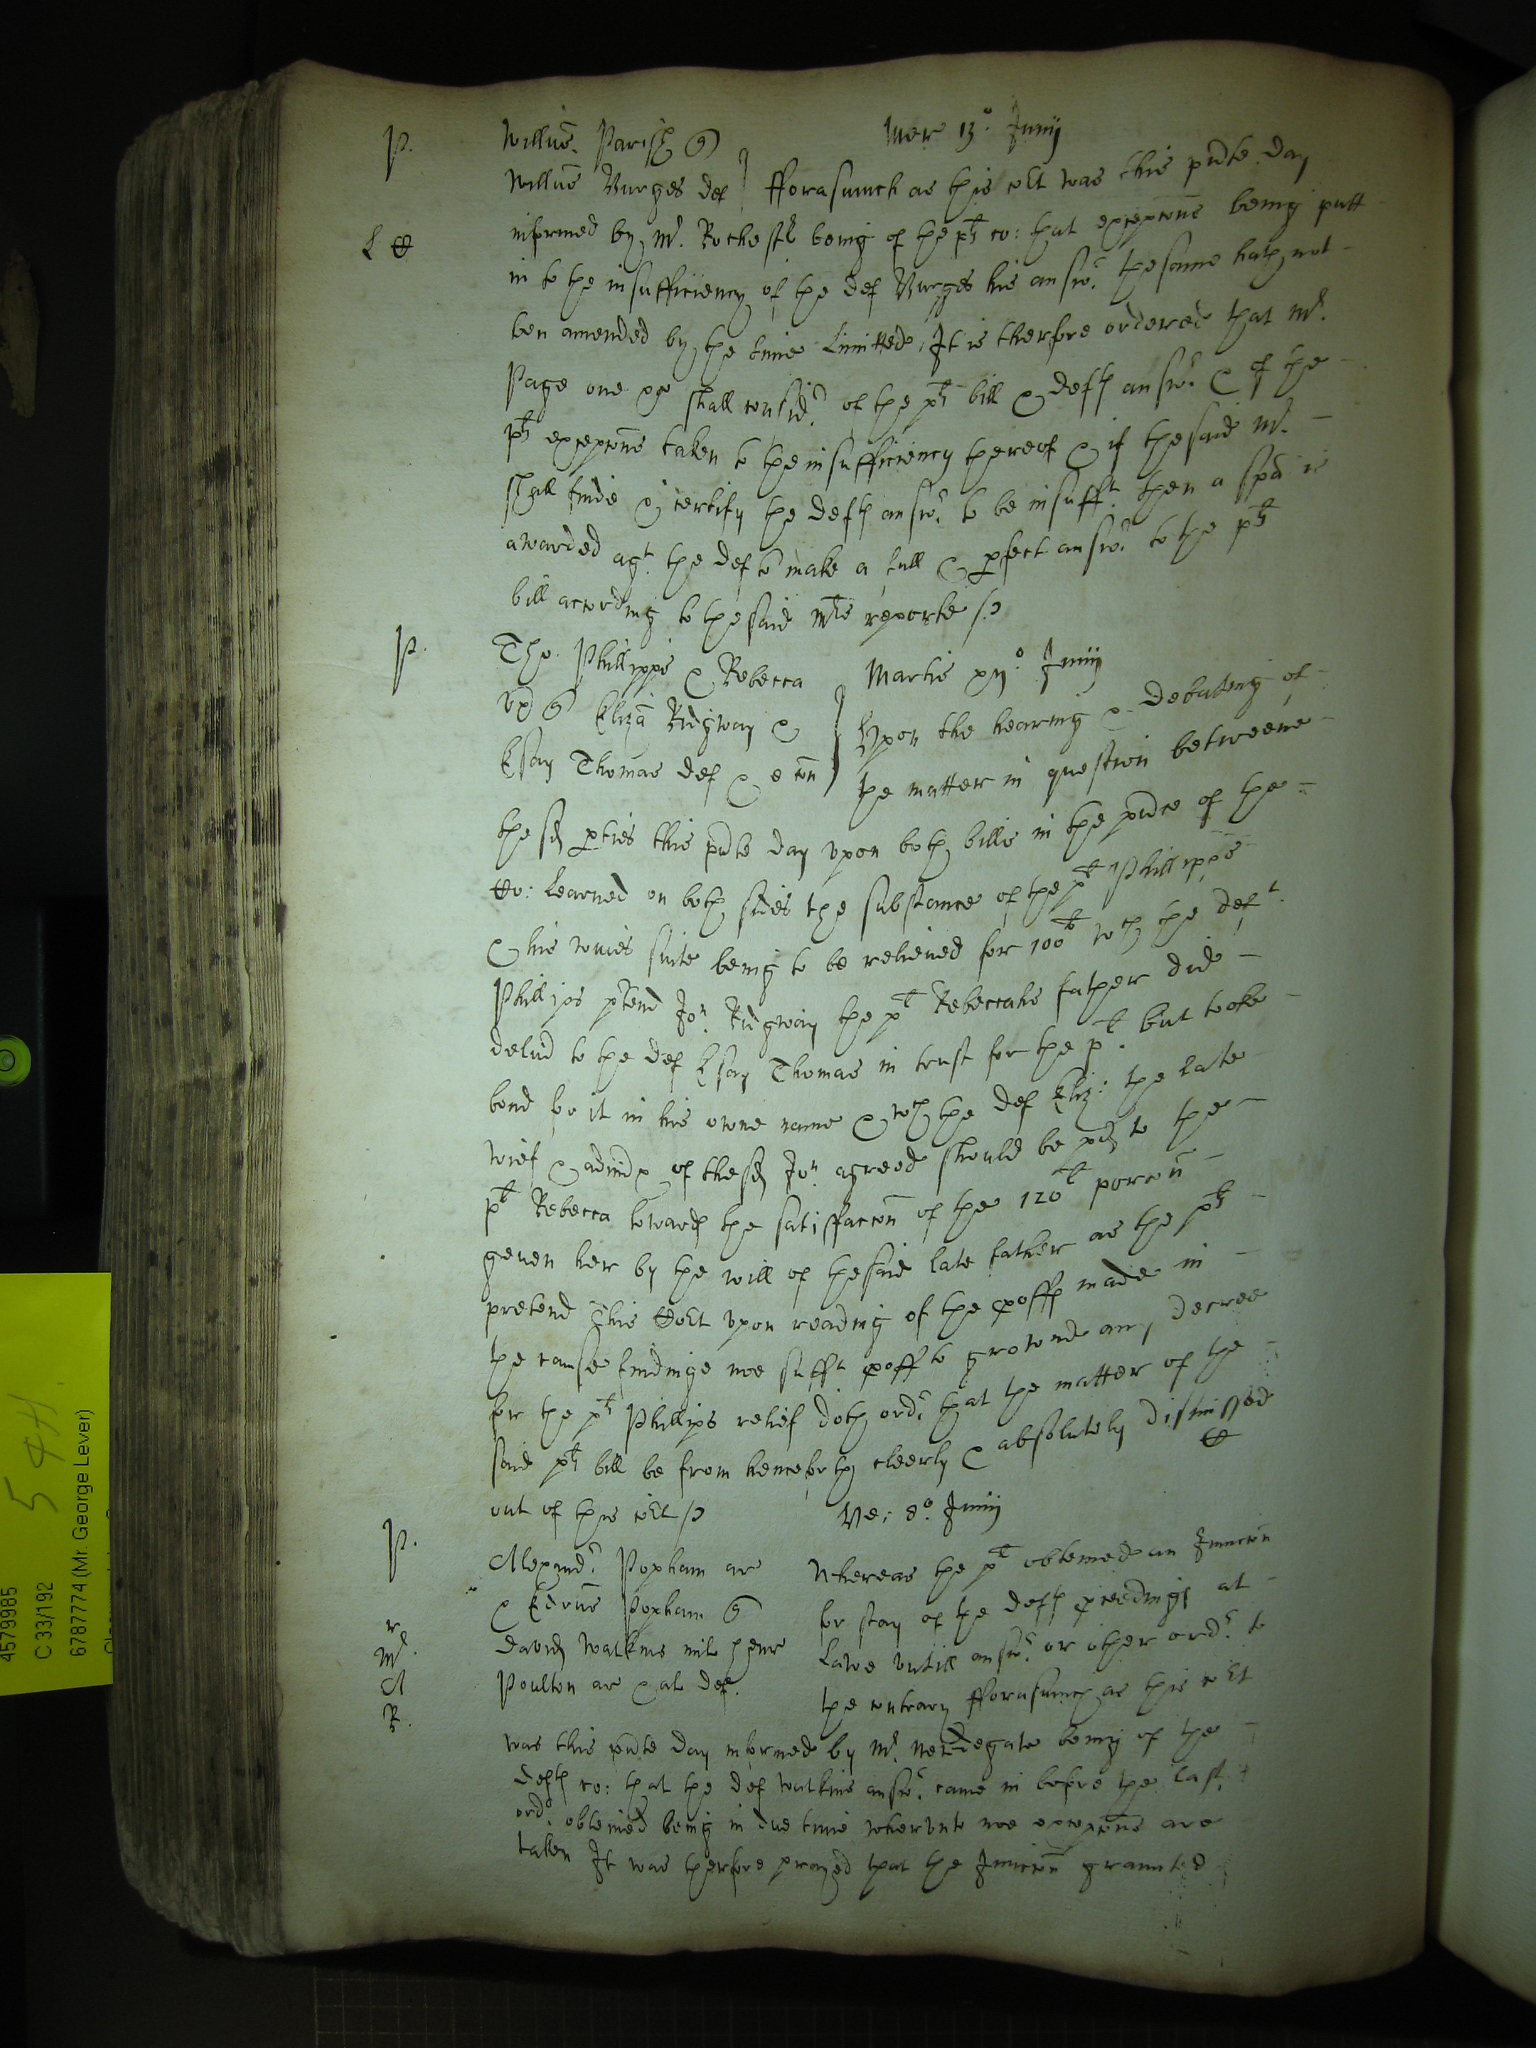 P. Willms. Parish q Mer 13° Junij
Willms Burges def } fforasmuch as this cort was this pnte day
informed by Mr. Rochestr being of the pts co: that excepcons being putt
L
in to the insufficiency of the def Burges his answ. the same hath not
ben amended by the time limitted, It is therfore ordered that Mr.
Page one &c shall consid. of the pts bill & defts answ. & of the
pts excepcons taken to the insufficiency thereof & if the said Mr.
shall finde & certify the defts answ. to be insufft. then a spa is
awarded agt. the def to make a full & pfect answ. to the pts
bill according to the said Mrs reporte
P. Tho. Phillipps & Rebecca Martis xij° Junij
ux q Eliza Ridgway & } Upon the hearing & debating of
Esay Thomas def & e con } the matter in question betweene
the sd pties this pnte day upon both bills in the pnce of the
Co: learned on both sides the substance of the pt Phillipps
& his wiues suite being to be releiued for 100li wch the deft.
Phillips ptend Jon. Ridgway the pt Rebeccahs father did
delud to the def Esay Thomas in trust for the pt. but tooke
bond for it in his owne name & wch the def Eliz: the late
wief & admx of the sd Jon. agreed should be pd to the
pt Rebecca towards the satisfaccon of the 120li porcon
geuen her by the will of the said late father as the pts
pretend This Cort upon reading of the proffs made in
the cause findinge noe sufft proff to grownd any decree
for the pts Phillips relief doth ord. that the matter of the
said pts bill be from henceforth cleerly & absolutely dismissed
out of this cort Ve: 8° Junij
P. Alexand. Popham ar Whereas the pt obteined an Iniuncon
& Edrus Popham q for stay of the defts pceedings at
r
Mr. David Watkins mil Henr Lawe untill answ. or other ord. to
A Poulton ar & al def. the contrary fforasmuch as this cort
R.
was this pnte day informed by Mr. Nerdegate being of the
defts co: that the def Watkins answ. came in before the last
ord. obteined being in due time wherunto noe excepcons are
taken It was therfore prayed that the Iniuncon graunted
4579985
C 33/192
6787774 (Mr. George Lever)